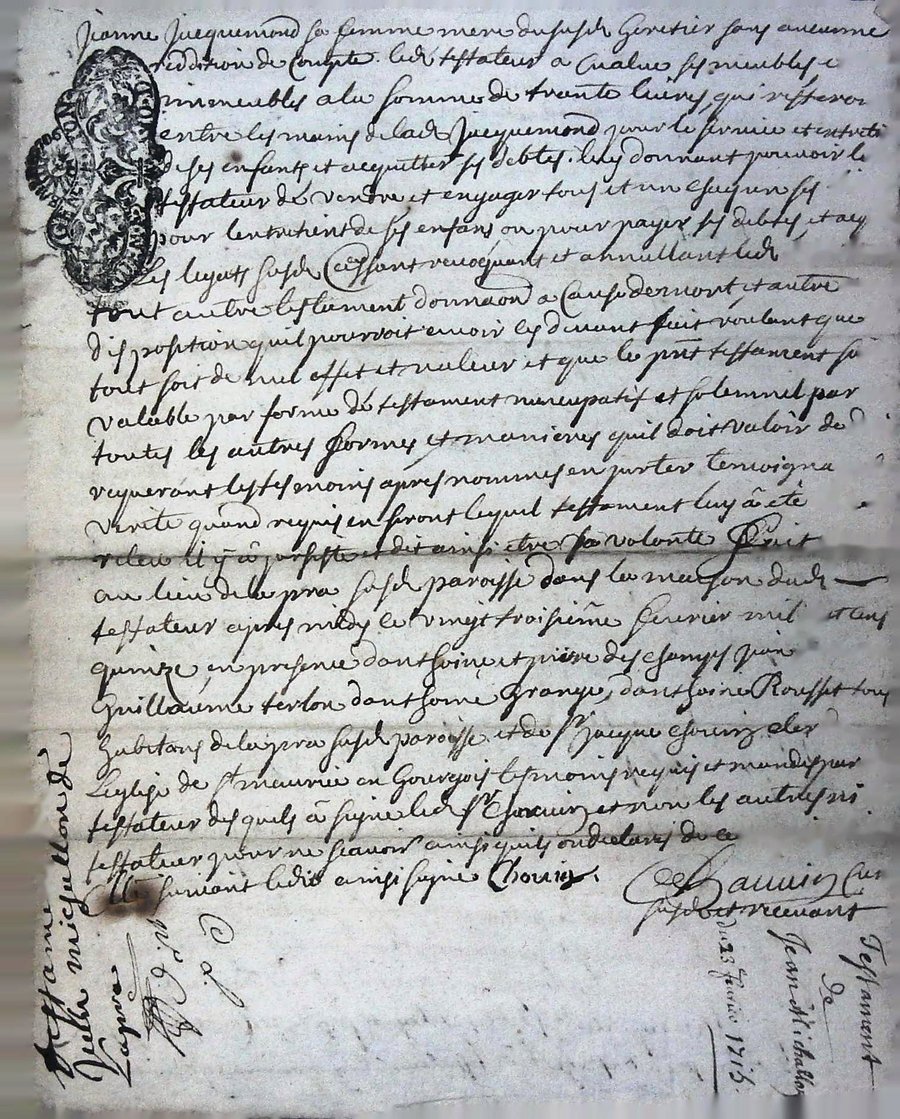 Jeanne Jacquemond sa femme mere dususd heretier sans aucunne
reddition de compte. led testateur a evalue ses meubles e
immeubles a la somme de trante livres, qui resteron
entre les mains de lad Jacquemond pour le service et entreti
de ses enfants et acquitter ses debtes. luy donnant pouvoir le
testateur de vendre et engager tous et un chaqun ses
pour lentretient de ses enfans ou pour payer ses debtes, et acq
les legats susd Cassant revocquant et annullant led
tout autre testament donnaond a Cause de mort et autre
disposition quil pourroit avoir cy devant fait voulant que
tout soit de nul effet et valeur et que le pnt testament so
valable par forme de testament nuncupatif et solemnel par
toutes les autres formes et manieres quil doit valoir de
requerant les tesmoins apres nommes en porter temoigna
verite quand requis en seront lequel testament luy à été
releu il y à persisté et dit ainsi etre sa volonté Fait
au lieu de la pra susd paroisse dans la maison dud
testateur apres midy le vingt troisiem fevrier mil et cens
quinze, en presence danthoine et pierre deschamps Jean
Guillaume terlon danthoine Grange, danthoine Rousset tous
habitans de la pra susd paroisse, et de sr jacque chouin cler
Leglise de st maurice en Gourgois tesmoins requis et mandes par
testateur desquels à signe led sr Chouin et non les autres ni
testateur pour ne scavoir ainsi quils ont declares de ce
suivant ledit ainsi signe Chouin.
susd et recevant
Testame
Jean michallon de
Lapra
du 23 fevrier 1715.
Testament
de
Jean Michallon